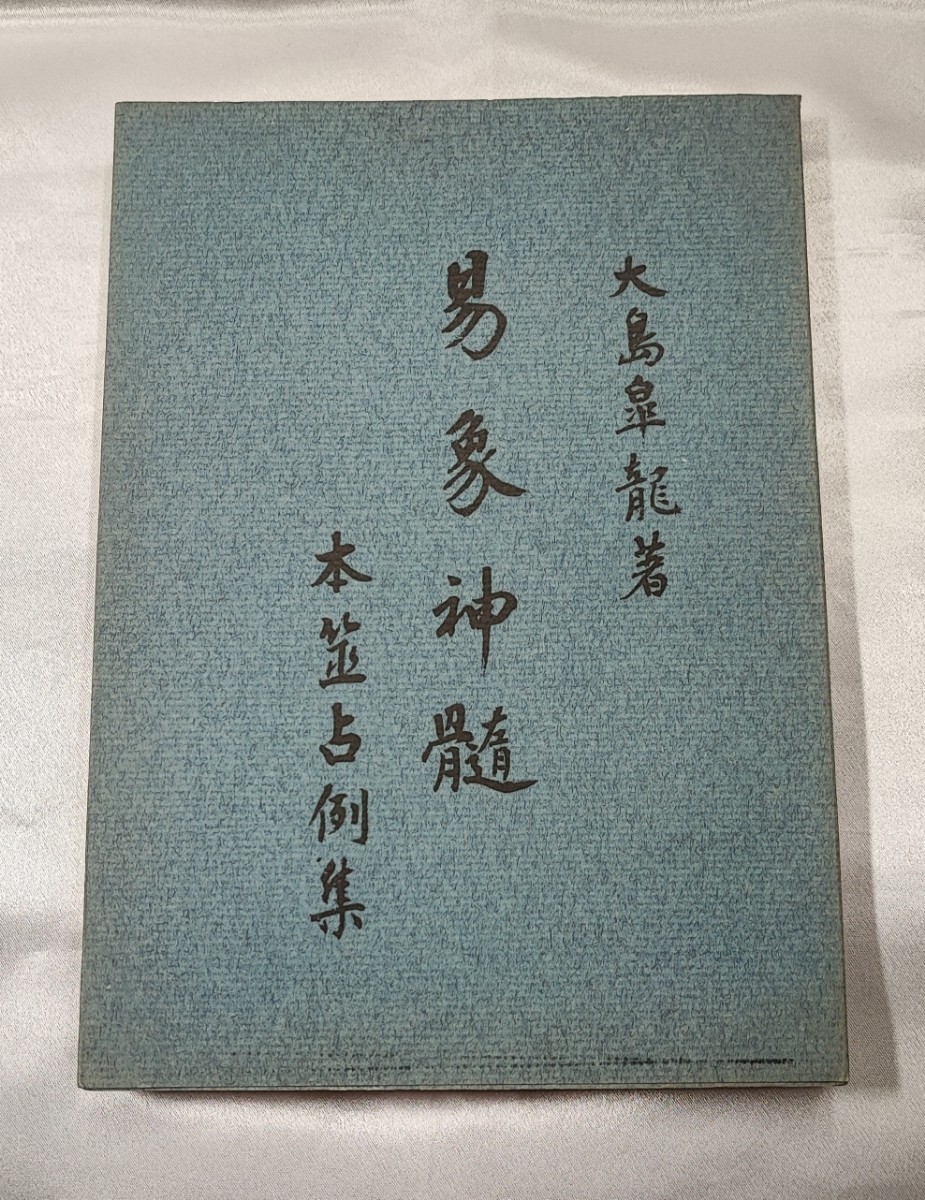 大島皐龍著
易象神髄
本筮占例集